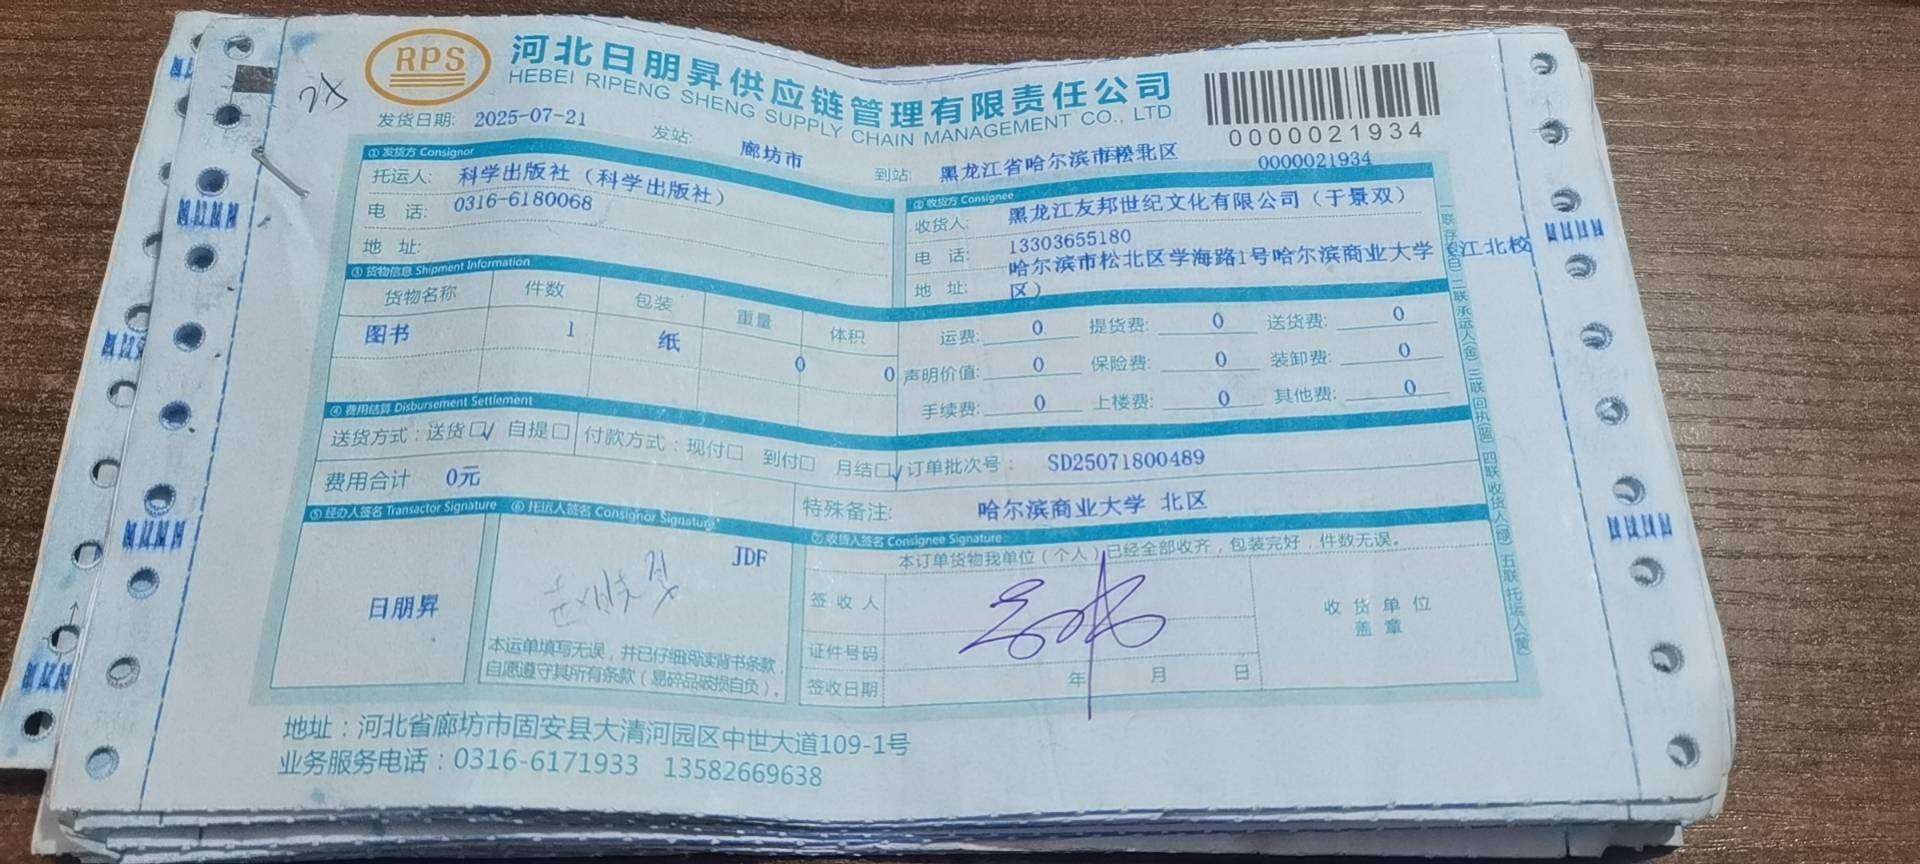 RPS
河北日朋昇供应链管理有限责任公司
HEBEI RIPENG SHENG SUPPLY CHAIN MANAGEMENT CO., LTD
0000021934
0000021934
发货日期: 2025-07-21 发站: 廊坊市 到站: 黑龙江省哈尔滨市松北区
① 发货方 Consignor
托运人: 科学出版社（科学出版社）
电 话: 0316-6180068
地 址:
② 收货方 Consignee
收货人: 黑龙江友邦世纪文化有限公司（于景双）
电 话: 13303655180
地 址: 哈尔滨市松北区学海路1号哈尔滨商业大学（江北校
区）
③ 货物信息 Shipment Information
货物名称 件数 包装 重量 体积
图书 1 纸 0 0
运费: 0 提货费: 0 送货费: 0
声明价值: 0 保险费: 0 装卸费: 0
手续费: 0 上楼费: 0 其他费: 0
④ 费用结算 Disbursement Settlement
送货方式：送货☐√ 自提☐ 付款方式：现付☐ 到付☐ 月结☐√ 订单批次号： SD25071800489
费用合计 0元 特殊备注: 哈尔滨商业大学 北区
⑤ 经办人签名 Transactor Signature
日朋昇
⑥ 托运人签名 Consignor Signature
JDF
本运单填写无误，并已仔细阅读背书条款，
自愿遵守其所有条款（易碎品破损自负）。
⑦ 收货人签名 Consignee Signature
本订单货物我单位（个人）已经全部收齐，包装完好，件数无误。
签 收 人
证件号码
签收日期 年 月 日
收 货 单 位
盖 章
一联存根(白) 二联承运人(金) 三联回执(蓝) 四联收货人(绿) 五联托运人(黄)
地址：河北省廊坊市固安县大清河园区中世大道109-1号
业务服务电话：0316-6171933 13582669638